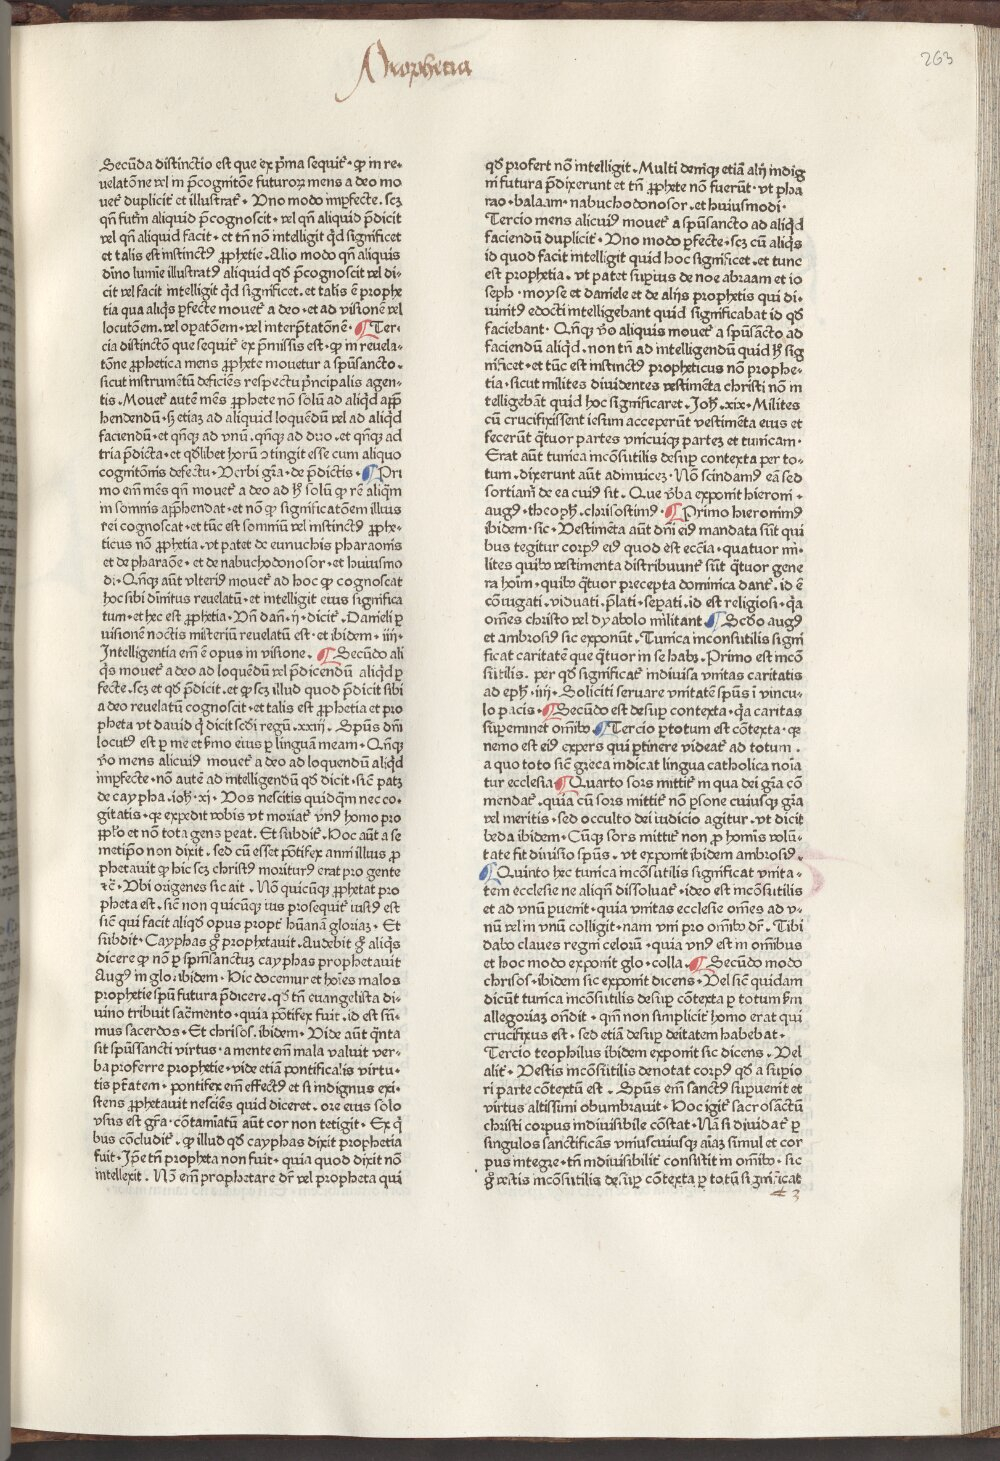 Prophetia
263
Secūda distinctio est que ex p̄ma sequit᷑ · ꝙ in re-
uelatōne vel in p̄cognitōne futuroꝝ mens a deo mo
uet᷑ duplicit᷑ et illustrat᷑ · Uno modo imꝑfecte. scꝫ
qn̄ futꝝ aliquid p̄cognoscit · vel qn̄ aliquid p̄dicit
vel qn̄ aliquid facit · et tn̄ nō intelligit qd̓ significet
et talis est instinctꝰ ꝓphetie · Alio modo qn̄ aliquis
diuīo lumīe illustratꝰ aliquid qd̓ p̄cognoscit vel di-
cit vel facit intelligit qd̓ significet. et talis ē prophe
tia qua aliqͥs ꝑfecte mouet᷑ a deo · et ad visionē vel
locutōem. vel oꝑatōem · vel interp̄tatōnē · ¶ Ter-
cia distinctō que sequit᷑ ex p̄missis est · ꝙ in reuela-
tōne ꝓphetica mens ꝓphete mouetur a spūsancto ·
sicut instrumētū deficiēs respectu p̄ncipalis agen-
tis · Mouet᷑ autē mens ꝓphete nō solū ad aliqd̓ app̄
hendendū · sꝫ etiaꝫ ad aliquid loquēdū vel ad aliqd̓
faciendū · et qn̄qꝫ ad vnū · qn̄qꝫ ad duo · et qn̄qꝫ ad
tria p̄dicta · et qd̓libet horū ↄtingit esse cum aliquo
cognitōnis defectu · Verbi gr̄a · de p̄dictis · ¶ Pri
mo em̄ mens qn̄ mouet᷑ a deo ad hꝫ solū ꝙ rē aliqm̄
in somnis app̄hendat · et nō ꝙ significatōem illius
rei cognoscat · et tūc est somniū vel instinctꝰ ꝓphe-
ticus nō ꝓphetia · vt patet de eunuchis pharaonis
et de pharaōe · et de nabuchodonosor · et huiusmo
di · Qn̄qꝫ aūt vlteriꝰ mouet᷑ ad hoc ꝙ cognoscat
hoc sibi diuinitus reuelatū · et intelligit eius significa
tum · et hec est ꝓphetia · Vn̄ dan̄ · ij · dicit᷑ · Danieli ꝑ
visionem noctis misteriū reuelatū est · et ibidem · iiij ·
Intelligentia em̄ ē opus in visione · ¶ Secūdo ali
qͥs mouet᷑ a deo ad loquēdū vel p̄dicendū aliqd̓ ꝑ
fecte · scꝫ et qd̓ p̄dicit · et ꝙ scꝫ illud quod p̄dicit sibi
a deo reuelatū cognoscit · et talis est ꝓphetia et pro
pheta vt dauid qͥ dicit scd̓i regū · xxiij · Spūs dn̄i
locutꝰ est ꝑ me et ẜmo eius ꝑ linguā meam · Qn̄qꝫ
v̓o mens alicuiꝰ mouet᷑ a deo ad loquendū aliqd̓
imꝑfecte · nō autē ad intelligendū qd̓ dicit · sicut patꝫ
de caypha · ioh̓ · xi · Vos nescitis quidqͣm nec co-
gitatis · qꝛ expedit vobis vt moriat᷑ vnꝰ homo pro
pp̄lo et nō tota gens ꝑeat · Et subdit᷑ · Hoc aūt a se
metipō non dixit · sed cū esset pōtifex anni illius ꝓ
phetauit ꝙ hic scꝫ christꝰ moriturꝰ erat pro gente
⁊c̄ · Vbi origenes sic ait · Nō quicūqꝫ ꝓphetat pro
pheta est · sicut non quicūqꝫ ius prosequit᷑ iustꝰ est
sicut qui facit aliqd̓ opus propt᷑ hūanā gloriaꝫ · Et
subdit · Cayphas gͦ prophetauit · Audebit gͦ aliqͥs
dicere ꝙ nō ꝑ spm̄sanctuꝫ cayphas prophetauit
Augꝰ in glo. ibidem · Hic docemur et hoīes malos
prophetie spū futura p̄dicere · qd̓ tn̄ euangelista di-
uino tribuit sacr̄mento · quia pōtifex fuit · id est sūm-
mus sacerdos · Et chrisos. ibidem · Vide aūt qn̄ta
sit spūssancti virtus · a mente em̄ mala valuit ver-
ba proferre prophetie · vide etiā pontificalis virtu-
tis p̄tatem · pontifex em̄ effectꝰ et si indignus exi-
stens ꝓphetauit nesciēs quid diceret · ore eius solo
vsus est gr̄a · cōtaminatū aūt cor non tetigit · Ex qͥ
bus cōcludit᷑ · ꝙ illud qd̓ cayphas dixit prophetia
fuit · Ip̄e tn̄ propheta non fuit · quia quod dixit nō
intellexit · Nō em̄ prophetare dr̄ vel propheta qui
qd̓ profert nō intelligit · Multi deniqꝫ etiā alij indig
ni futura p̄dixerunt et tn̄ ꝓphete nō fuerūt · vt pha
rao · balaam · nabuchodonosor · et huiusmodi ·
Tercio mens alicuiꝰ mouet᷑ a spūsancto ad aliqd̓
faciendū duplicit᷑ · Uno modo ꝑfecte · scꝫ cū aliqͥs
id quod facit intelligit quid hoc significet · et tunc
est prophetia · vt patet suꝑius de noe abraam et io
seph · moyse et daniele et de alijs prophetis qui di-
uinitꝰ edocti intelligebant quid significabat id qd̓
faciebant · Qn̄qꝫ v̓o aliquis mouet᷑ a spūsancto ad
faciendū aliqd̓ · non tn̄ ad intelligendū quid hꝫ sig
nificet · et tūc est instinctꝰ propheticus nō prophe-
tia · sicut milites diuidentes vestimēta christi nō in
telligebāt quid hoc significaret · Joh̓ · xix · Milites
cū crucifixissent iesum acceperūt vestimēta eius et
fecerūt qͣtuor partes vnicuiqꝫ parteꝫ et tunicam ·
Erat aūt tunica incōsutilis desuꝑ contexta per to-
tum · dixerunt aūt adinuicē · Nō scindamꝰ eā sed
sortiamꝰ de ea cuiꝰ sit · Que v̓ba exponit hieronī ·
augꝰ · theoph̓ · chrisostimꝰ · ¶ Primo hieronimꝰ
ibidem · sic · Vestimēta aūt dn̄i eiꝰ mandata sūt qui
bus tegitur corpꝰ eiꝰ quod est eccl̓ia · quatuor mi-
lites quibꝰ vestimenta distribuunt᷑ sūt qͣtuor gene
ra hoīm · quibꝰ qͣtuor precepta dominica dant᷑ · id ē
cōiugati · viduati · p̄lati · seꝑati · id est religiosi · qꝛ
om̄es christo vel dyabolo militant ¶ Scd̓o augꝰ
et ambrosiꝰ sic exponūt · Tunica inconsutilis signi
ficat caritatē que qͣtuor in se habꝫ · Primo est incō
sutilis · per qd̓ significat᷑ indiuisa vnitas caritatis
ad eph̓ · iiij · Soliciti seruare vnitatē spūs ī vincu-
lo pacis · ¶ Secūdo est desuꝑ contexta · qꝛ caritas
suꝑeminet om̄ibꝰ · ¶ Tercio ꝑ totum est cōtexta · qꝛ
nemo est eiꝰ expers qui ꝑtinere videat᷑ ad totum ·
a quo toto sicut greca indicat lingua catholica noīa
tur ecclesia ¶ Quarto sors mittit᷑ in qua dei gr̄a cō
mendat᷑ · quia cū sors mittit᷑ nō ꝑsone cuiusqꝫ gr̄a
vel meritis · sed occulto dei iudicio agitur · vt dicit
beda ibidem · Cūqꝫ sors mittit᷑ non ꝑ homīs volū-
tate fit diuisio spūs · vt exponit ibidem ambrosiꝰ ·
¶ Quinto hec tunica incōsutilis significat vnita-
tem ecclesie ne aliqn̄ dissoluat᷑ · ideo est incōsutilis
et ad vnū ꝑuenit · quia vnitas ecclesie om̄es ad v-
nū vel in vnū colligit · nam vni pro om̄ibꝰ dr̄ · Tibi
dabo claues regni celorū · quia vnꝰ est in om̄ibus
et hoc modo exponit glo · colla · ¶ Secūdo modo
chrisos · ibidem sic exponit dicens · Vel sicut quidam
dicūt tunica incōsutilis desuꝑ cōtexta ꝑ totum ẜm
allegoriaꝫ on̄dit · qm̄ non simplicit᷑ homo erat qui
crucifixus est · sed etiā desuꝑ deitatem habebat ·
Tercio teophilus ibidem exponit sic dicens · Vel
alit᷑ · Vestis incōsutilis denotat corpꝰ qd̓ a suꝑio
ri parte cōtextū est · Spūs em̄ sanctꝰ suꝑuenit et
virtus altissimi obumbrauit · Hoc igit᷑ sacrosāctū
christi corpus indiuisibile cōstat · Nā si diuidat᷑ ꝑ
singulos sanctificās vniuscuiusqꝫ aīaꝫ simul et cor
pus integre · tn̄ indiuisibilit᷑ consistit in om̄ibꝰ · sic
gͦ vestis incōsutilis desuꝑ cōtexta ꝑ totū significat